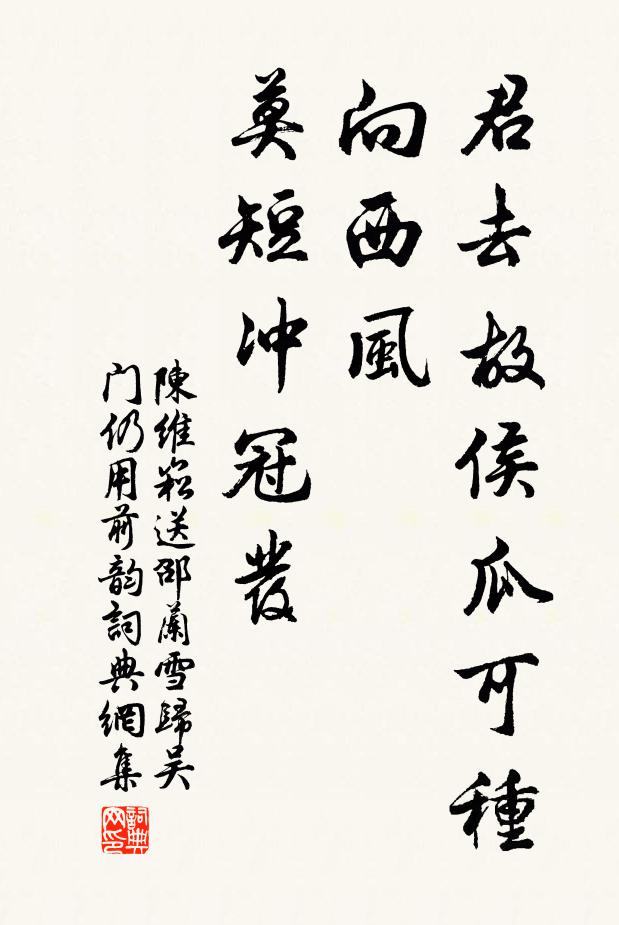 君去故侯瓜可種
向西風
莫短冲冠發
陳維崧送邵蘭雪歸吴
门仍用前韵詞典網集
詞典网印